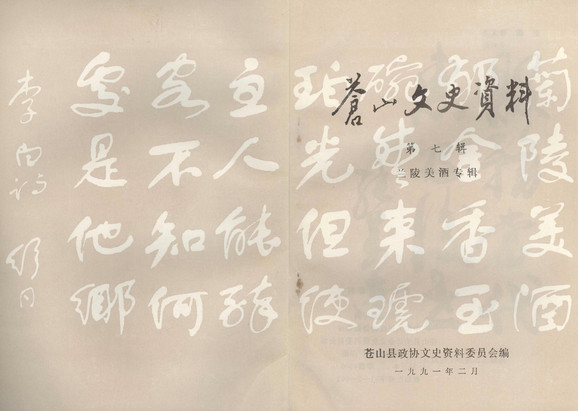 苍山文史資料
第七辑
兰陵美酒专辑
苍山县政协文史资料委员会编
一九九一年二月
蘭陵美酒
郁金香玉
碗盛来琥
珀光但使
主人能醉
客不知何
處是他鄉
李白詩 舒同